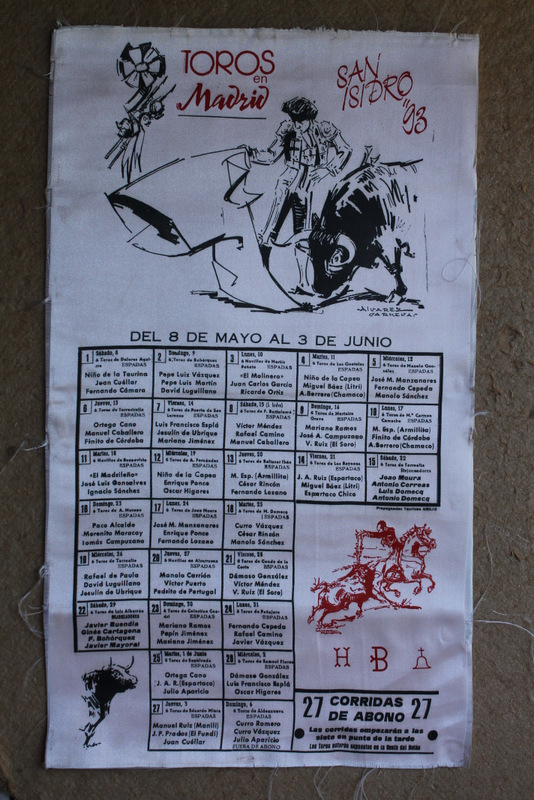 TOROS
en
Madrid
SAN
ISIDRO
"93
ALVAREZ
DEL 8 DE MAYO AL 3 DE JUNIO
1 Sábado, 8
ESPADAS
Niño de la Taurina
Juan Cuéllar
Fernando Cámara
2 Domingo, 9
6 Toros de Bohórquez
ESPADAS
Pepe Luis Vázquez
Pepe Luis Martín
David Luguillano
3 Lunes, 10
ESPADAS
«El Molinero»
Juan Carlos García
Ricardo Ortiz
4 Martes, 11
ESPADAS
Niño de la Capea
Miguel Báez (Litri)
A. Borrero (Chamaco)
5 Miércoles, 12
ESPADAS
José M. Manzanares
Fernando Cepeda
Manolo Sánchez
6 Jueves, 13
6 Toros de Torrestrella
ESPADAS
Ortega Cano
Manuel Caballero
Finito de Córdoba
7 Viernes, 14
6 Toros de Puerto de San
Lorenzo ESPADAS
Luis Francisco Esplá
Joselín de Ubrique
Mariano Jiménez
8 Sábado, 15
ESPADAS
Víctor Méndes
Rafael Camino
Manuel Caballero
9 Domingo, 16
ESPADAS
Mariano Ramos
José A. Campuzano
V. Ruiz (El Soro)
10 Lunes, 17
6 Toros de M.ª Carmen
Camacho ESPADAS
M. Esp. (Armillita)
Finito de Córdoba
A. Borrero (Chamaco)
11 Martes, 18
ESPADAS
«El Madrileño»
José Luis Gonçalves
Ignacio Sánchez
12 Miércoles, 19
6 Toros de A. Fernández
ESPADAS
Niño de la Capea
Enrique Ponce
Oscar Higares
13 Jueves, 20
6 Toros de Baltasar Ibán
ESPADAS
M. Esp. (Armillita)
César Rincón
Fernando Lozano
14 Viernes, 21
ESPADAS
J. A. Ruiz (Espartaco)
Miguel Báez (Litri)
Espartaco Chico
15 Sábado, 22
Rejoneadores
Joao Moura
Antonio Correas
Luis Domecq
Antonio Domecq
16 Domingo, 23
ESPADAS
Paco Alcalde
Morenito Maracay
Tomás Campuzano
17 Lunes, 24
ESPADAS
José M. Manzanares
Enrique Ponce
Fernando Lozano
18 Martes, 25
ESPADAS
Curro Vázquez
César Rincón
Manolo Sánchez
19 Miércoles, 26
ESPADAS
Rafael de Paula
David Luguillano
Joselín de Ubrique
20 Jueves, 27
ESPADAS
Manolo Carrión
Víctor Puerto
Pedrito de Portugal
21 Viernes, 28
6 Toros de Conde de la
Corte ESPADAS
Dámaso González
Víctor Méndes
V. Ruiz (El Soro)
22 Sábado, 29
Javier Buendía
Ginés Cartagena
F. Bohórquez
Javier Mayoral
23 Domingo, 30
ESPADAS
Mariano Ramos
Pepín Jiménez
Mariano Jiménez
24 Lunes, 31
6 Toros de Peñajara
ESPADAS
Fernando Cepeda
Rafael Camino
Javier Vázquez
25 Martes, 1 de Junio
6 Toros de Sepúlveda
ESPADAS
Ortega Cano
J. A. R. (Espartaco)
Julio Aparicio
26 Miércoles, 2
6 Toros de Samuel Flores
ESPADAS
Dámaso González
Luis Francisco Esplá
Oscar Higares
27 Jueves, 3
ESPADAS
Manuel Ruiz (Manili)
J. P. Prados (El Fundi)
Juan Cuéllar
Domingo, 6
ESPADAS
Curro Romero
Curro Vázquez
Julio Aparicio
FUERA DE ABONO
H B
27 CORRIDAS DE ABONO 27
Las corridas empezarán a las
siete en punto de la tarde
Los Toros estarán expuestos en la Venta del Batán